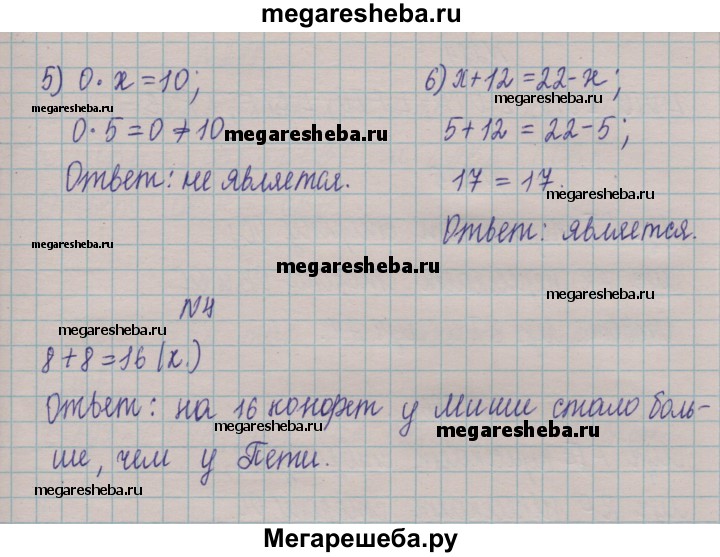 megaresheba.ru
5) 0·x=10;
6) x+12=22-x;
megaresheba.ru
megaresheba.ru
0·5=0≠10
megaresheba.ru
5+12=22-5;
Ответ: не является.
17=17.
megaresheba.ru
Ответ: является.
megaresheba.ru
megaresheba.ru
megaresheba.ru
№4
megaresheba.ru
8+8=16 (к.)
megaresheba.ru
Ответ: на 16 конфет у Миши стало боль-
megaresheba.ru
megaresheba.ru
ше, чем у Пети.
megaresheba.ru
megaresheba.ru
Мегарешеба.ру